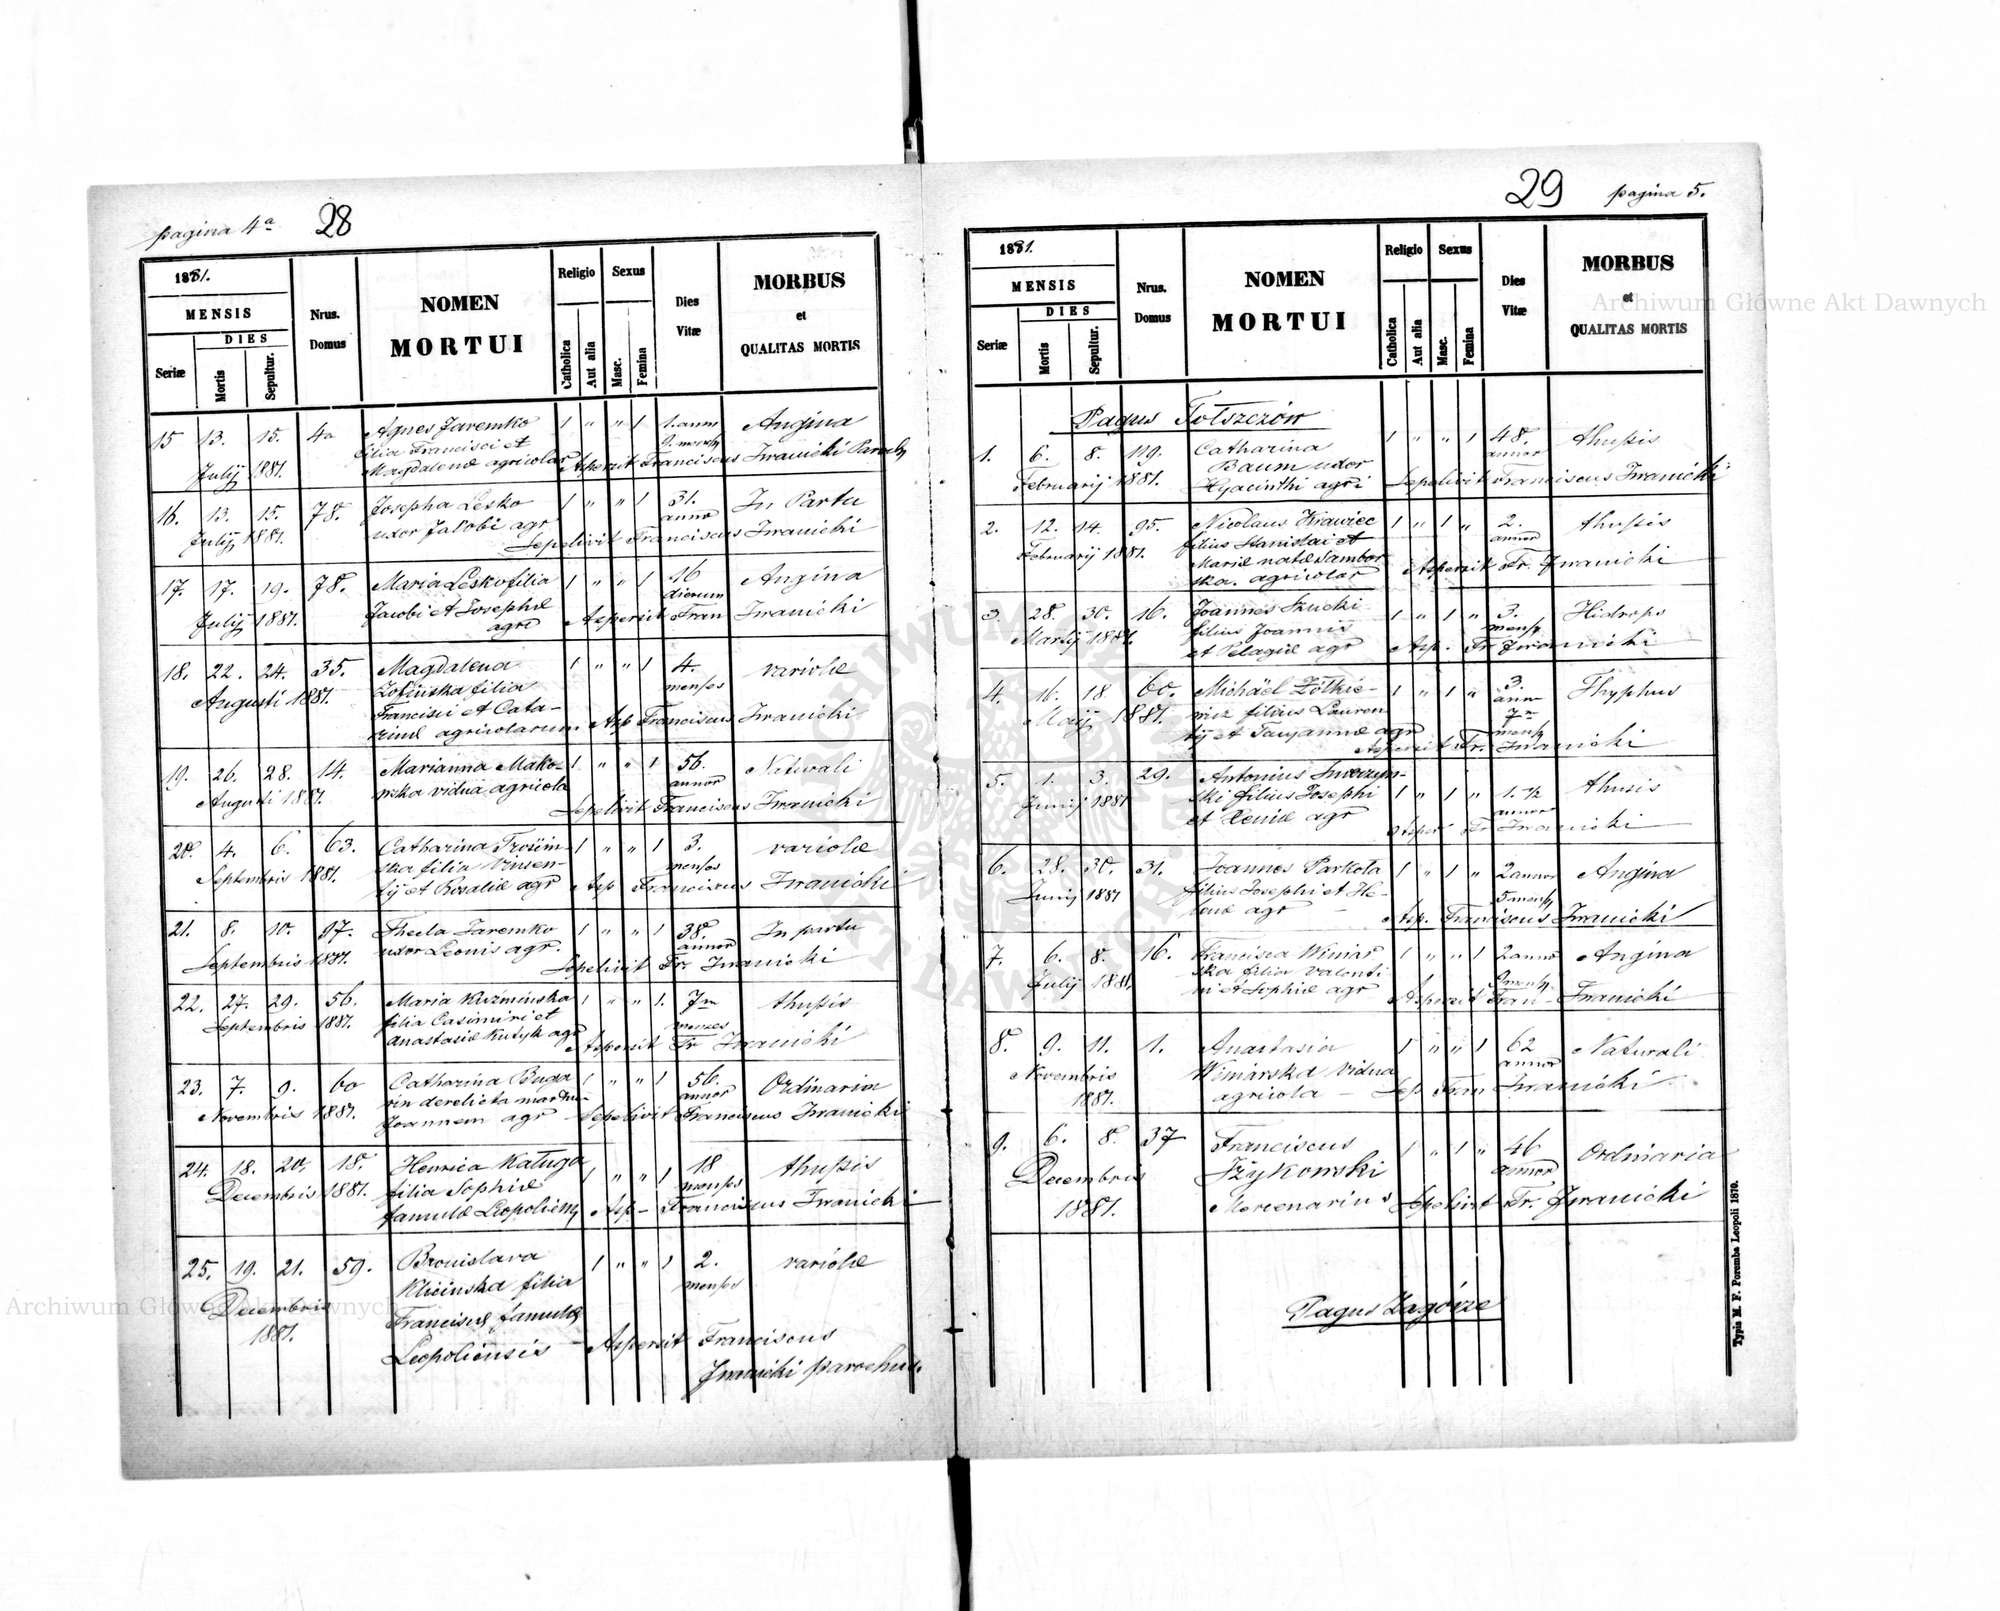 pagina 4a 28
1881.
MENSIS
DIES
Seriæ
Mortis
Sepultur.
Nrus. Domus
NOMEN
MORTUI
Religio
Catholica
Aut alia
Sexus
Masc.
Femina
Dies
Vitæ
MORBUS
et
QUALITAS MORTIS
15 13. 15. 4a Agnes Jaremko 1 " " 1 1. ann Angina
filia Francisci et 9. mens
Julij 1881. Magdalenæ agricolar Aspersit Franciscus Iwanicki Paroch
16. 13. 15. 78. Josepha Lesko 1 " " 1 31. In Partu
Julij 1881. uxor Jacobi agr annor
Sepelivit Franciscus Iwanicki
17. 17. 19. 78. Maria Lesko filia 1 " " 1 16 Angina
Julij 1881. Jacobi et Josephæ dierum
agr Aspersit Fran Iwanicki
18. 22. 24. 35. Magdalena 1 " " 1 4. variolæ
Augusti 1881. filia menses
Francisci et Cata-
rinæ agricolarum Asp Franciscus Iwanicki
19. 26. 28. 14. Marianna Mako- 1 " " 1 56. Naturali
Augusti 1881. wska vidua agricola annor
Sepelivit Franciscus Iwanicki
20. 4. 6. 63. Catharina 1 " " 1 3. variolæ
Septembris 1881. ska filia Vincen- menses
tij et Rosaliæ agr Asp Franciscus Iwanicki
21. 8. 10. 97. Thecla Jaremko 1 " " 1 38. In partu
Septembris 1881. uxor Leonis agr. annor
Sepelivit Fr. Iwanicki
22. 27. 29. 56. Maria Kuźmińska 1 " " 1. 7m thußis
Septembris 1881. filia Casimiri et menses
Anastasiæ Kutyk agr Aspersit Fr Iwanicki
23. 7. 9. 60 Catharina Buga 1 " " 1 56. Ordinaria
Novembris 1881. rin derelicta annor
Joannem agr Sepelivit Franciscus Iwanicki
24. 18. 20. 18. Henrica Kaługa 1 " " 1 18 thußis
Decembris 1881. filia Sophiæ menses
famulæ Leopoliens Asp- Franciscus Iwanicki
25. 19. 21. 59. Bronislava 1 " " 1 2. variolæ
Decembris Klicinska filia menses
1881. Franciscæ famulæ
Leopoliensis - Aspersit Franciscus
Iwanicki parochus.
29 pagina 5.
1881.
MENSIS
DIES
Seriæ
Mortis
Sepultur.
Nrus.
Domus
NOMEN
MORTUI
Religio
Catholica
Aut alia
Sexus
Masc.
Femina
Dies
Vitæ
MORBUS
et
QUALITAS MORTIS
Pagus Tołszczów
1. 6. 8. 119. Catharina 1 " " 1 48. thußis
Februarij 1881. Baum uxor annor
Hyacinthi agri Sepelivit Franciscus Iwanicki
2. 12. 14. 95. Nicolaus Krawiec 1 " 1 " 2. thußis
Februarij 1881. filius Stanislai et annor
Mariæ natæ Sambor
ska. agricolar Aspersit Fr. Iwanicki
3. 28. 30. 16. Joannes 1 " 1 " 3. Hidrops
Martij 1881. filius Joannis mens
et Pelagiæ agr Asp. Fr Iwanicki
4. 16. 18 60. Michäel Żółkie- 1 " 1 " 3. Thyphus
Maij 1881. wicz filius Lauren annor
tij et Taxjannæ agr 7m mens
Aspersit Fr. Iwanicki
5. 1. 3. 29. Antonius
Junij 1881 ski filius Josephi 1 " 1 " 1. 1/2 thusis
et Xeniæ agr annor
Asper Fr Iwanicki
6. 28. 30. 31. Joannes Parkola 1 " 1 " 2 annor Angina
Junij 1881 filius Josephi et He- 5 mens
lenæ agr - Asp. Franciscus Iwanicki
7. 6. 8. 16. Francisca Winiar 1 " " 1 2 annor Angina
Julij 1881. ska filia Valenti mens
ni et Sophiæ agr Aspersit Fran - Iwanicki
8. 9. 11. 1. Anastasia 1 " " 1 62 Naturali
Novembris Winiarska vidua annor
1881. agricola - Sep Fran Iwanicki
9. 6. 8. 37 Franciscus 1 " 1 " 46 Ordinaria
Decembris Iżykowski annor
1881. Mercenarius Sepelivit Fr. Iwanicki
Pagus Zagórze
Typis M. F. Poremba Leopoli 1870.
Archiwum Główne Akt Dawnych
Archiwum Główne Akt Dawnych
ARCHIWUM GŁÓWNE AKT DAWNYCH